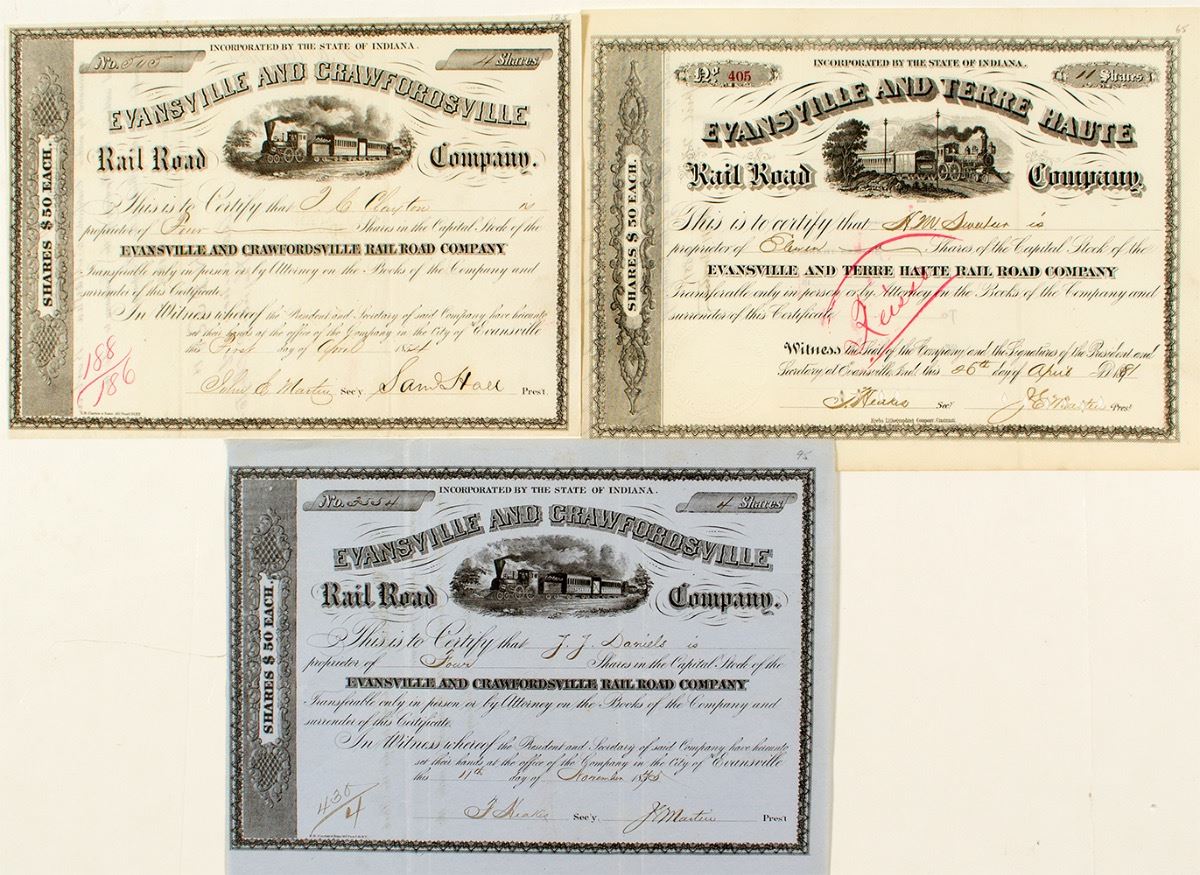 INCORPORATED BY THE STATE OF INDIANA.
No. 505
4 Shares
EVANSVILLE AND CRAWFORDSVILLE
Rail Road Company.
SHARES $ 50 EACH.
This is to Certify that J C Clayton is
proprietor of Four Shares in the Capital Stock of the
EVANSVILLE AND CRAWFORDSVILLE RAIL ROAD COMPANY
Transferable only in person or by Attorney on the Books of the Company and
surrender of this Certificate.
In Witness whereof the President and Secretary of said Company have hereunto
set their hands at the office of the Company in the City of Evansville
this First day of April 1854
188
186
John E Martin Sec'y. Saml Hall Pres't.
65
INCORPORATED BY THE STATE OF INDIANA.
No. 405
11 Shares
EVANSVILLE AND TERRE HAUTE
Rail Road Company.
SHARES $ 50 EACH.
This is to certify that is
proprietor of Eleven Shares of the Capital Stock of the
EVANSVILLE AND TERRE HAUTE RAIL ROAD COMPANY
Transferable only in person or by Attorney on the Books of the Company and
surrender of this Certificate
Witness the Seal of the Company and the Signatures of the President and
Secretary at Evansville, Ind. this 26th day of April AD 1881
Sec'y J. E. Martin Pres't
95
INCORPORATED BY THE STATE OF INDIANA.
No. 2554
4 Shares
EVANSVILLE AND CRAWFORDSVILLE
Rail Road Company.
SHARES $ 50 EACH.
This is to Certify that J. J. Daniels is
proprietor of Four Shares in the Capital Stock of the
EVANSVILLE AND CRAWFORDSVILLE RAIL ROAD COMPANY
Transferable only in person or by Attorney on the Books of the Company and
surrender of this Certificate.
In Witness whereof the President and Secretary of said Company have hereunto
set their hands at the office of the Company in the City of Evansville
this 11th day of November 1875
430
4
Sec'y. J E Martin Pres't